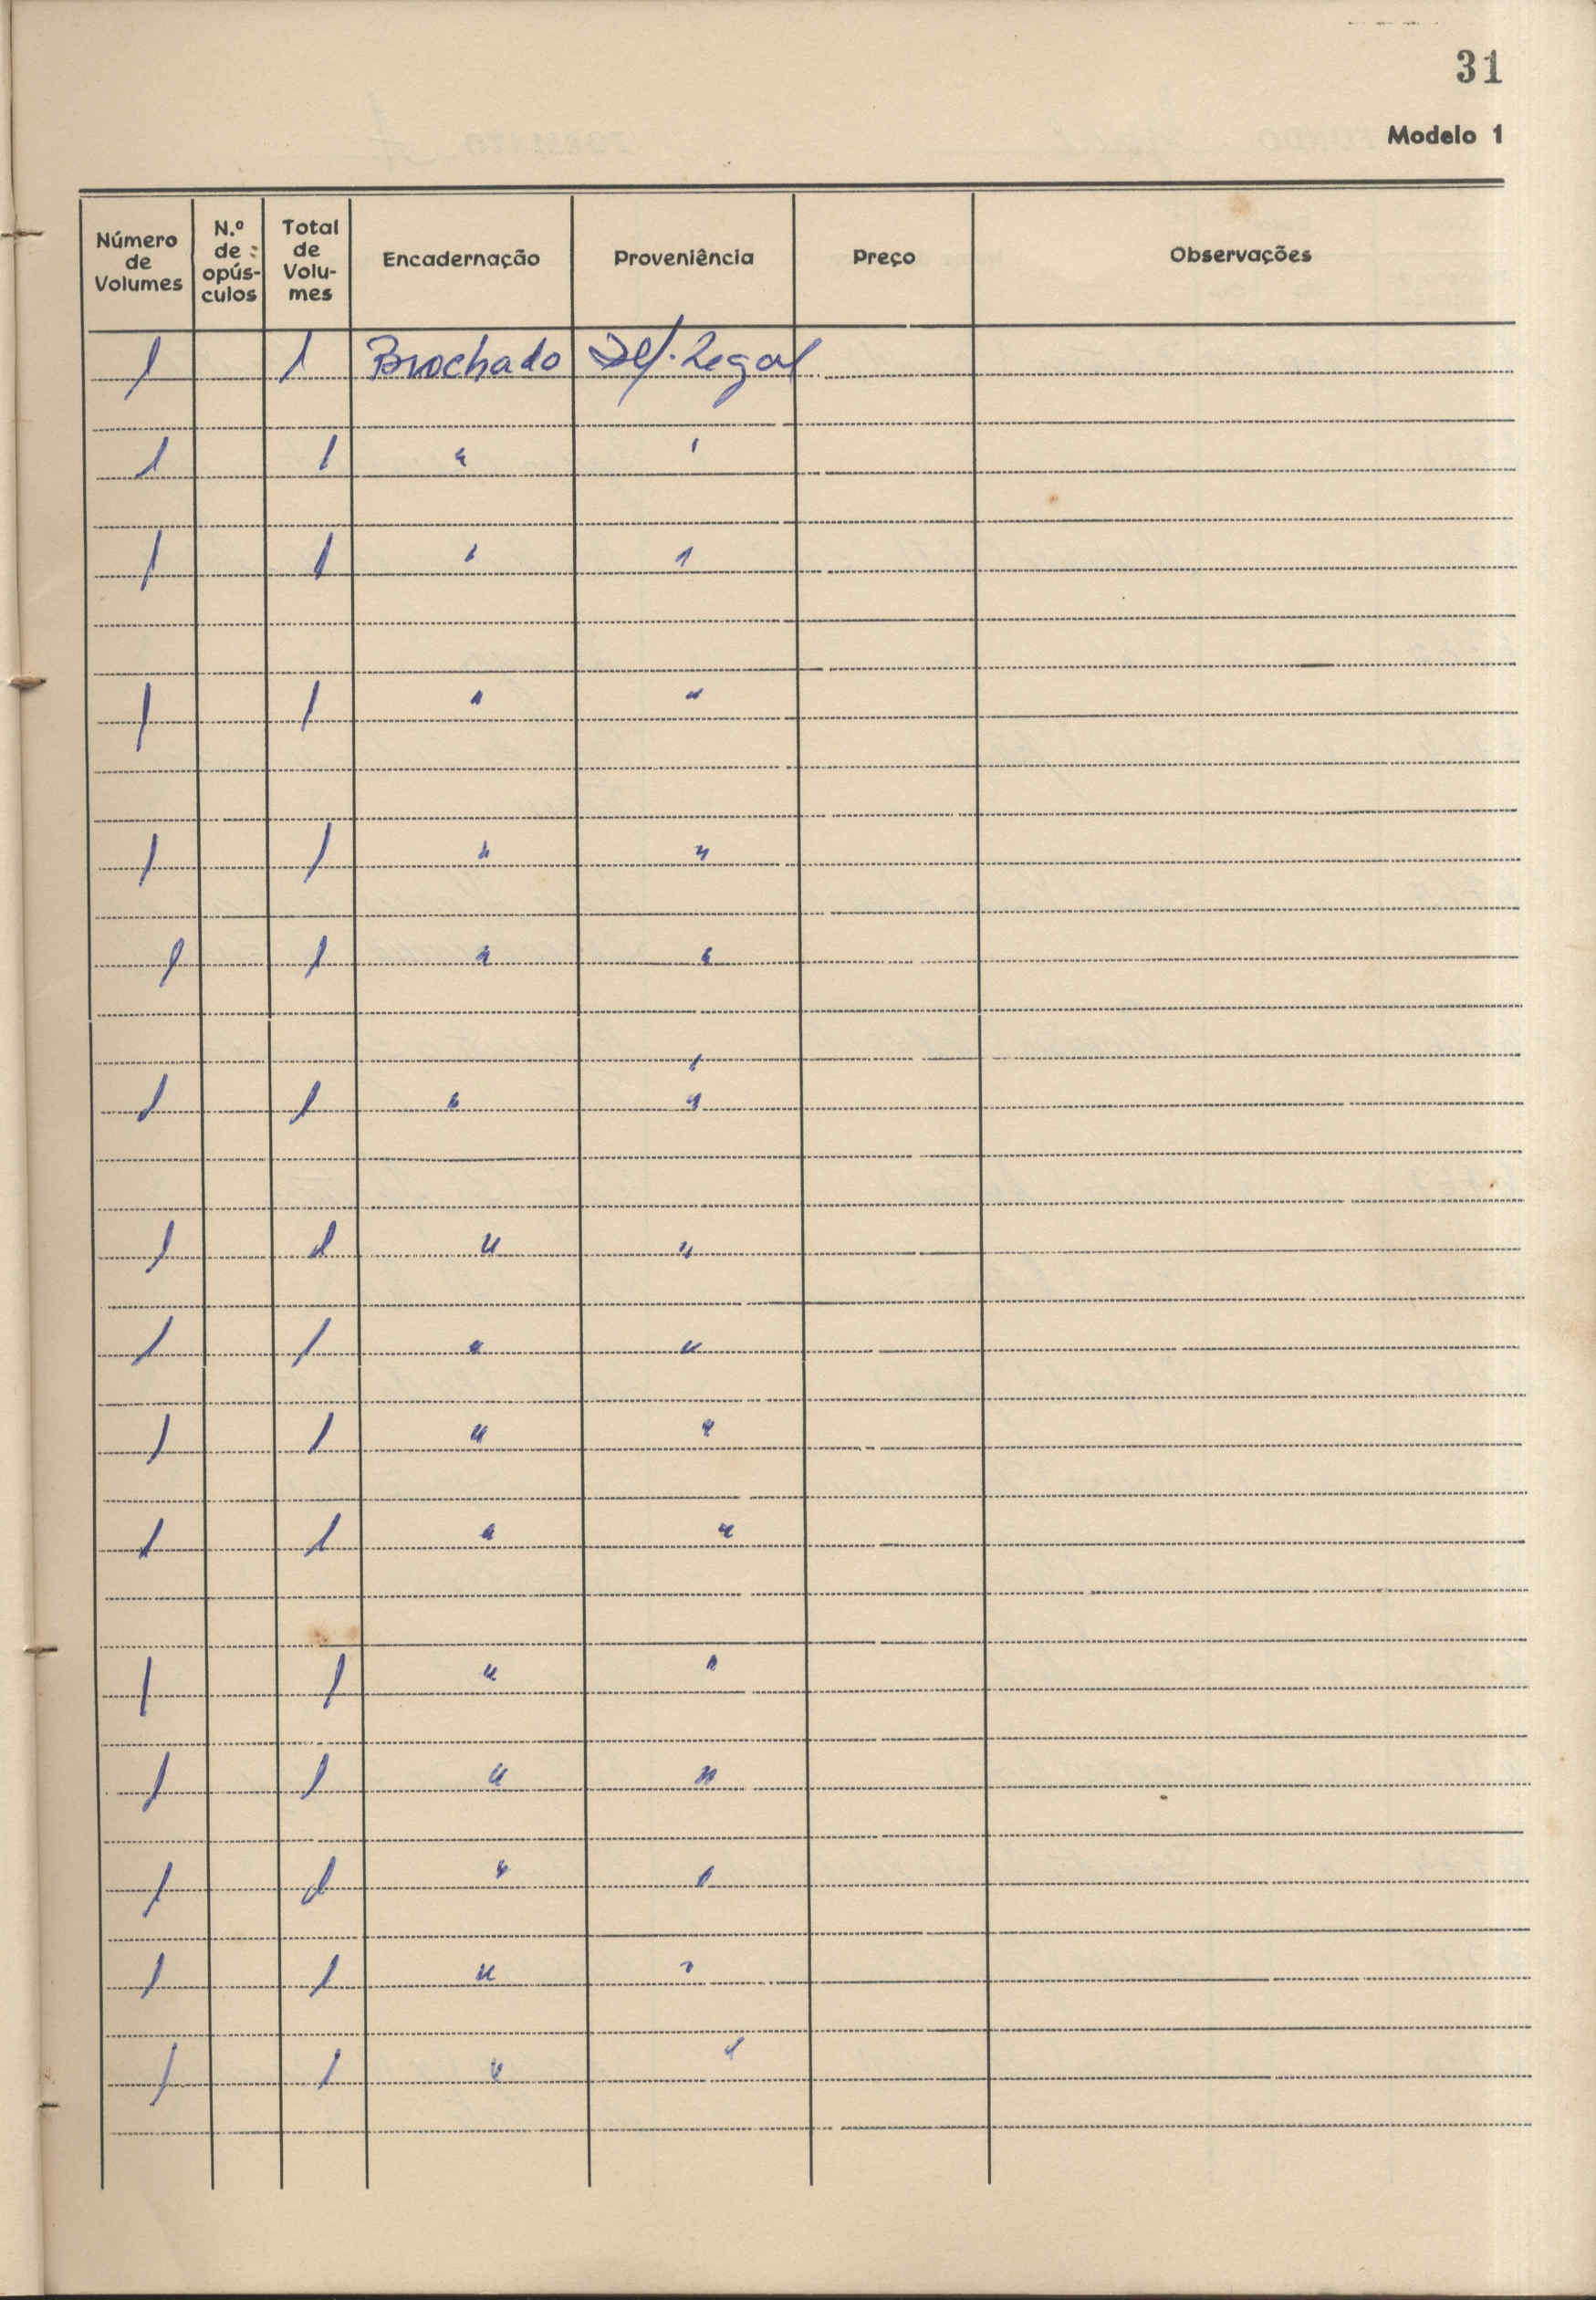 31
Modelo 1
Número de Volumes | N.º de opús-culos | Total de Volu-mes | Encadernação | Proveniência | Preço | Observações
1 | | 1 | Brochado | Def. Legal
1 | | 1 | " | "
1 | | 1 | " | "
1 | | 1 | " | "
1 | | 1 | " | "
1 | | 1 | " | "
1 | | 1 | " | "
1 | | 1 | " | "
1 | | 1 | " | "
1 | | 1 | " | "
1 | | 1 | " | "
1 | | 1 | " | "
1 | | 1 | " | "
1 | | 1 | " | "
1 | | 1 | " | "
1 | | 1 | " | "